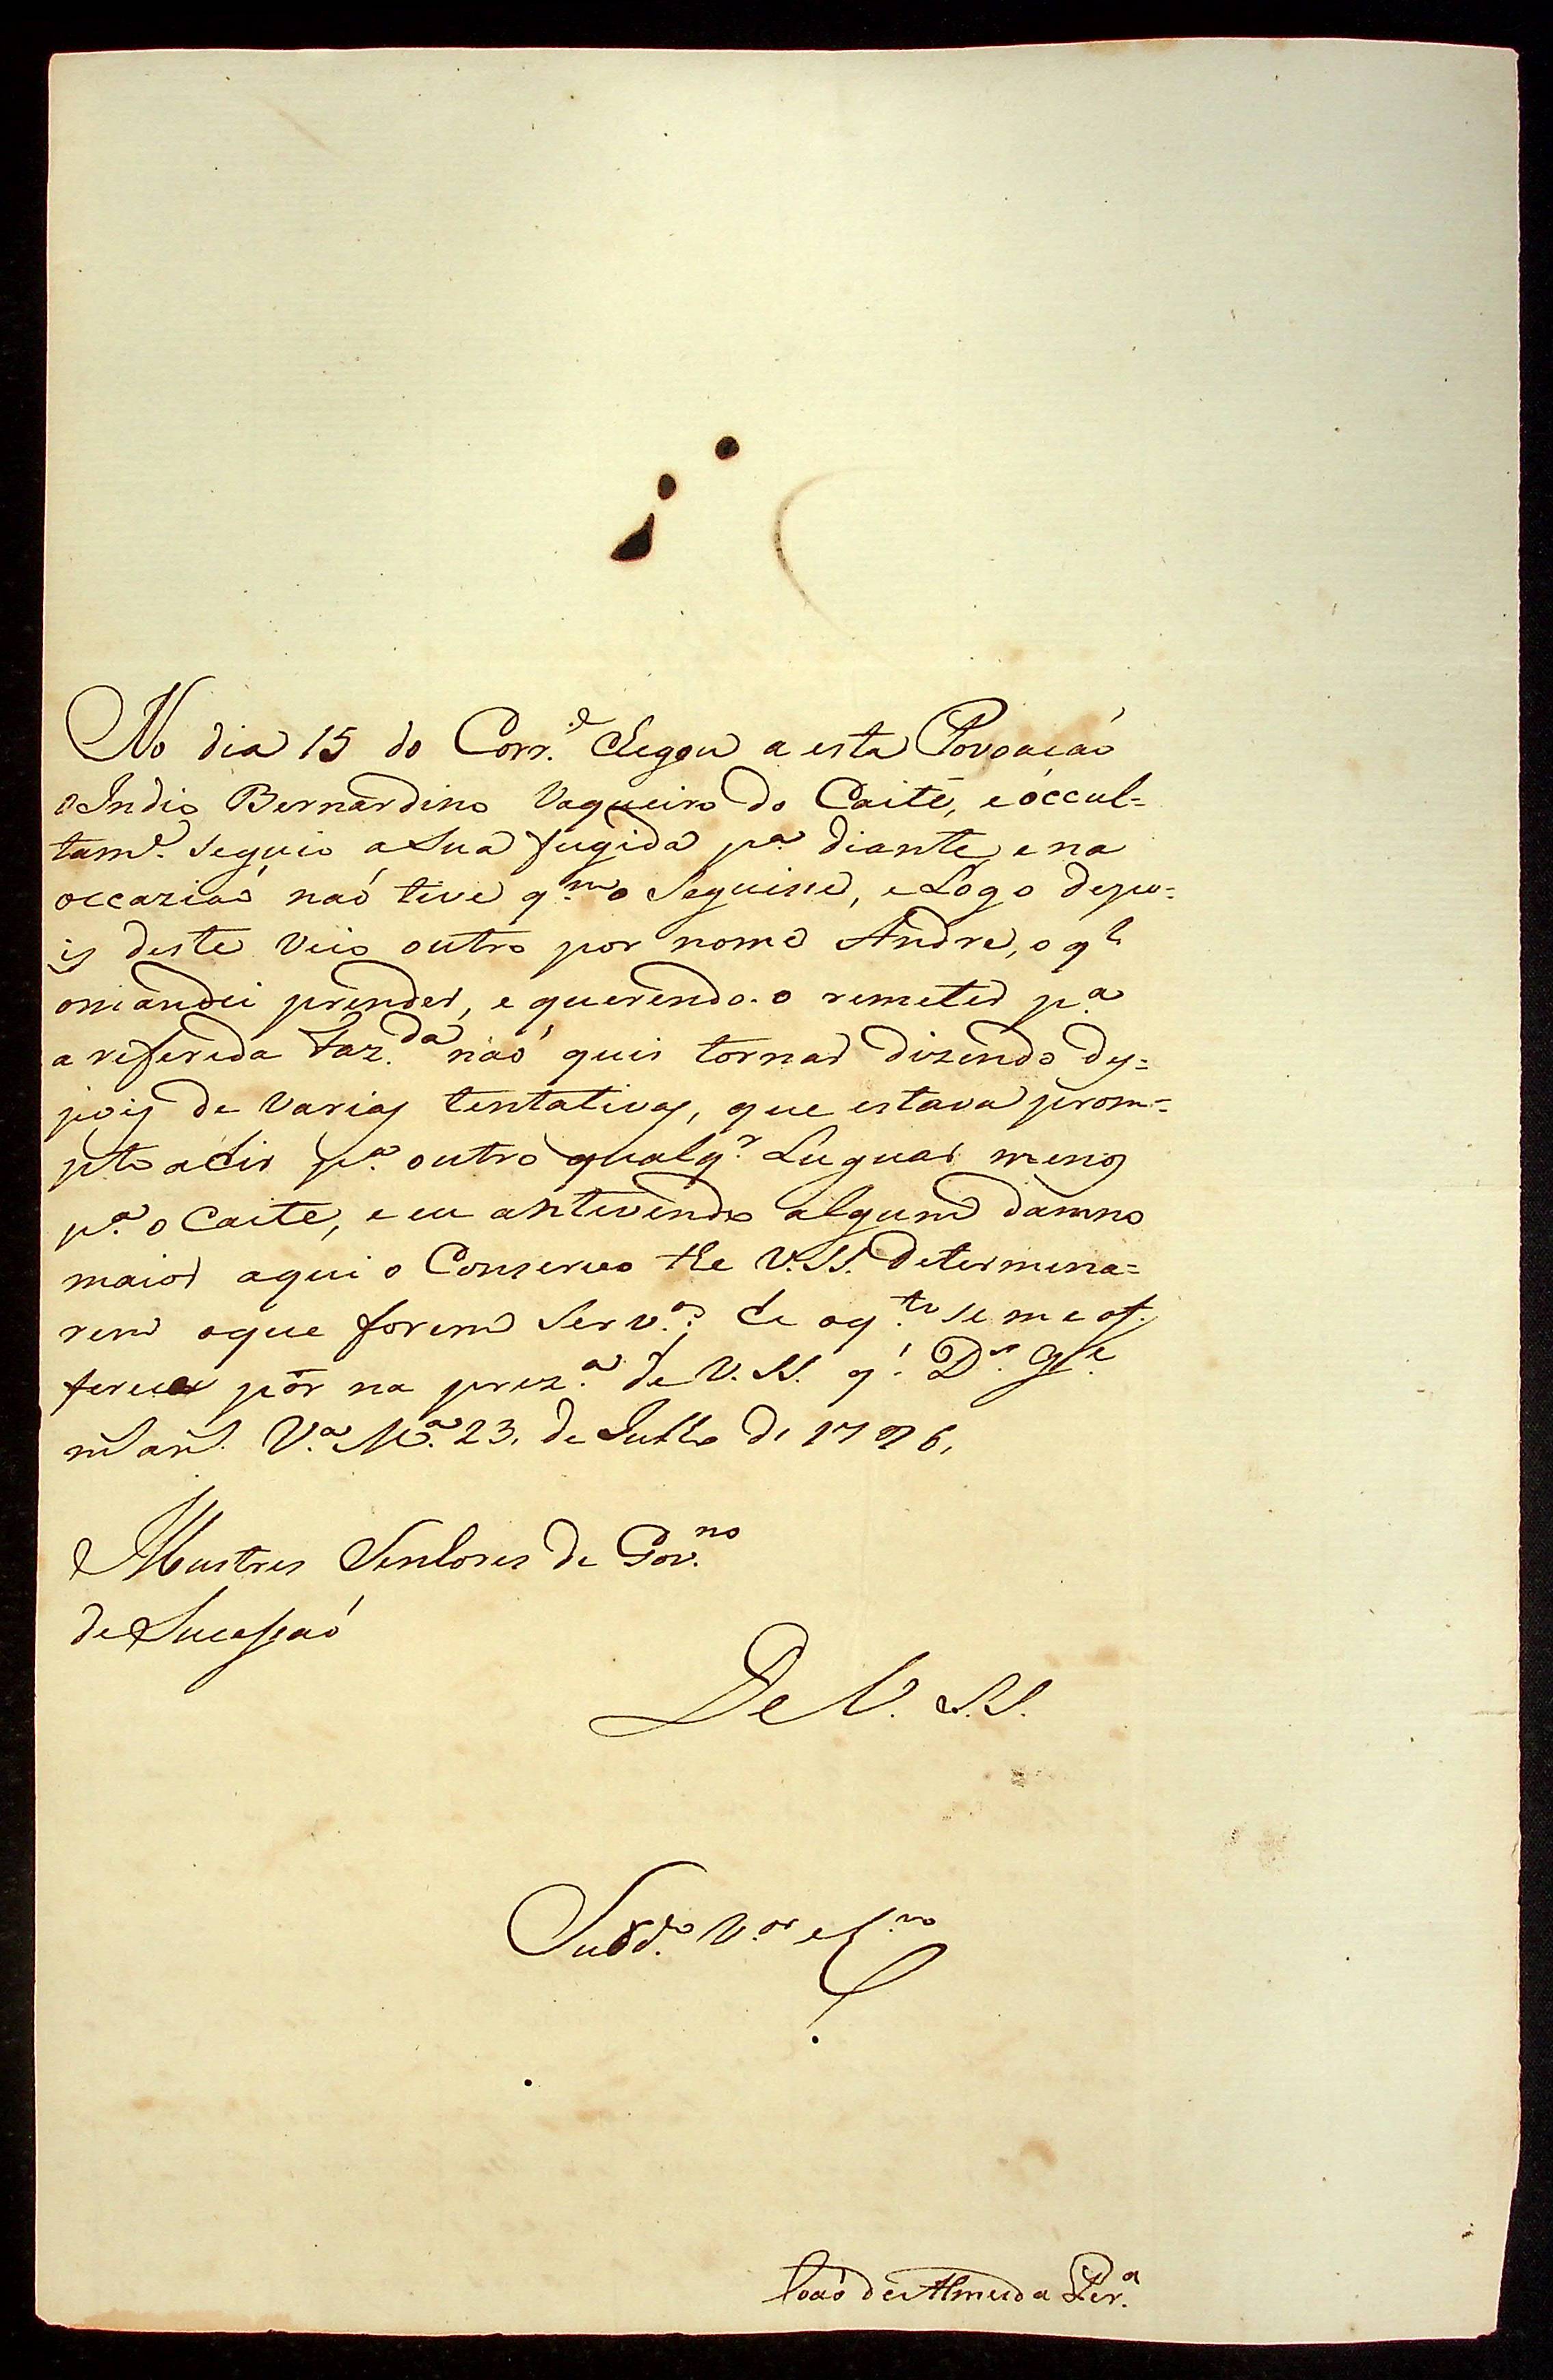 No dia 15 do Corr.e Chegou a esta Povoação
o Indio Bernardino Vaqueiro do Caité, e occul=
tam.e seguio a sua fugida p.a diante, e na
occazião não tive q.m o Seguisse, e Logo depo=
is deste veio outro por nome Andre, o q.l
omandei prender, e querendo-o remeter p.a
a referida Faz.da não quis tornar dizendo de=
pois de varias tentativas, que estava prom=
pto a hir p.a outro qualq.r Luguar menos
p.a o Caite, e eu antevendo algum damno
maior aqui o Conservo the V.SS. determina=
rem oque forem Serv.os; he oq.to se me of=
ferece pôr na prez.a de V.SS. q' D.s g.e
m.s an.s V.a M.a 23. de Julho de 1776,
Illustres Senhores de Gov.no
de Sucessão
De V. SS.
Subd.o V.or e C.ro
João de Almeida Per.a